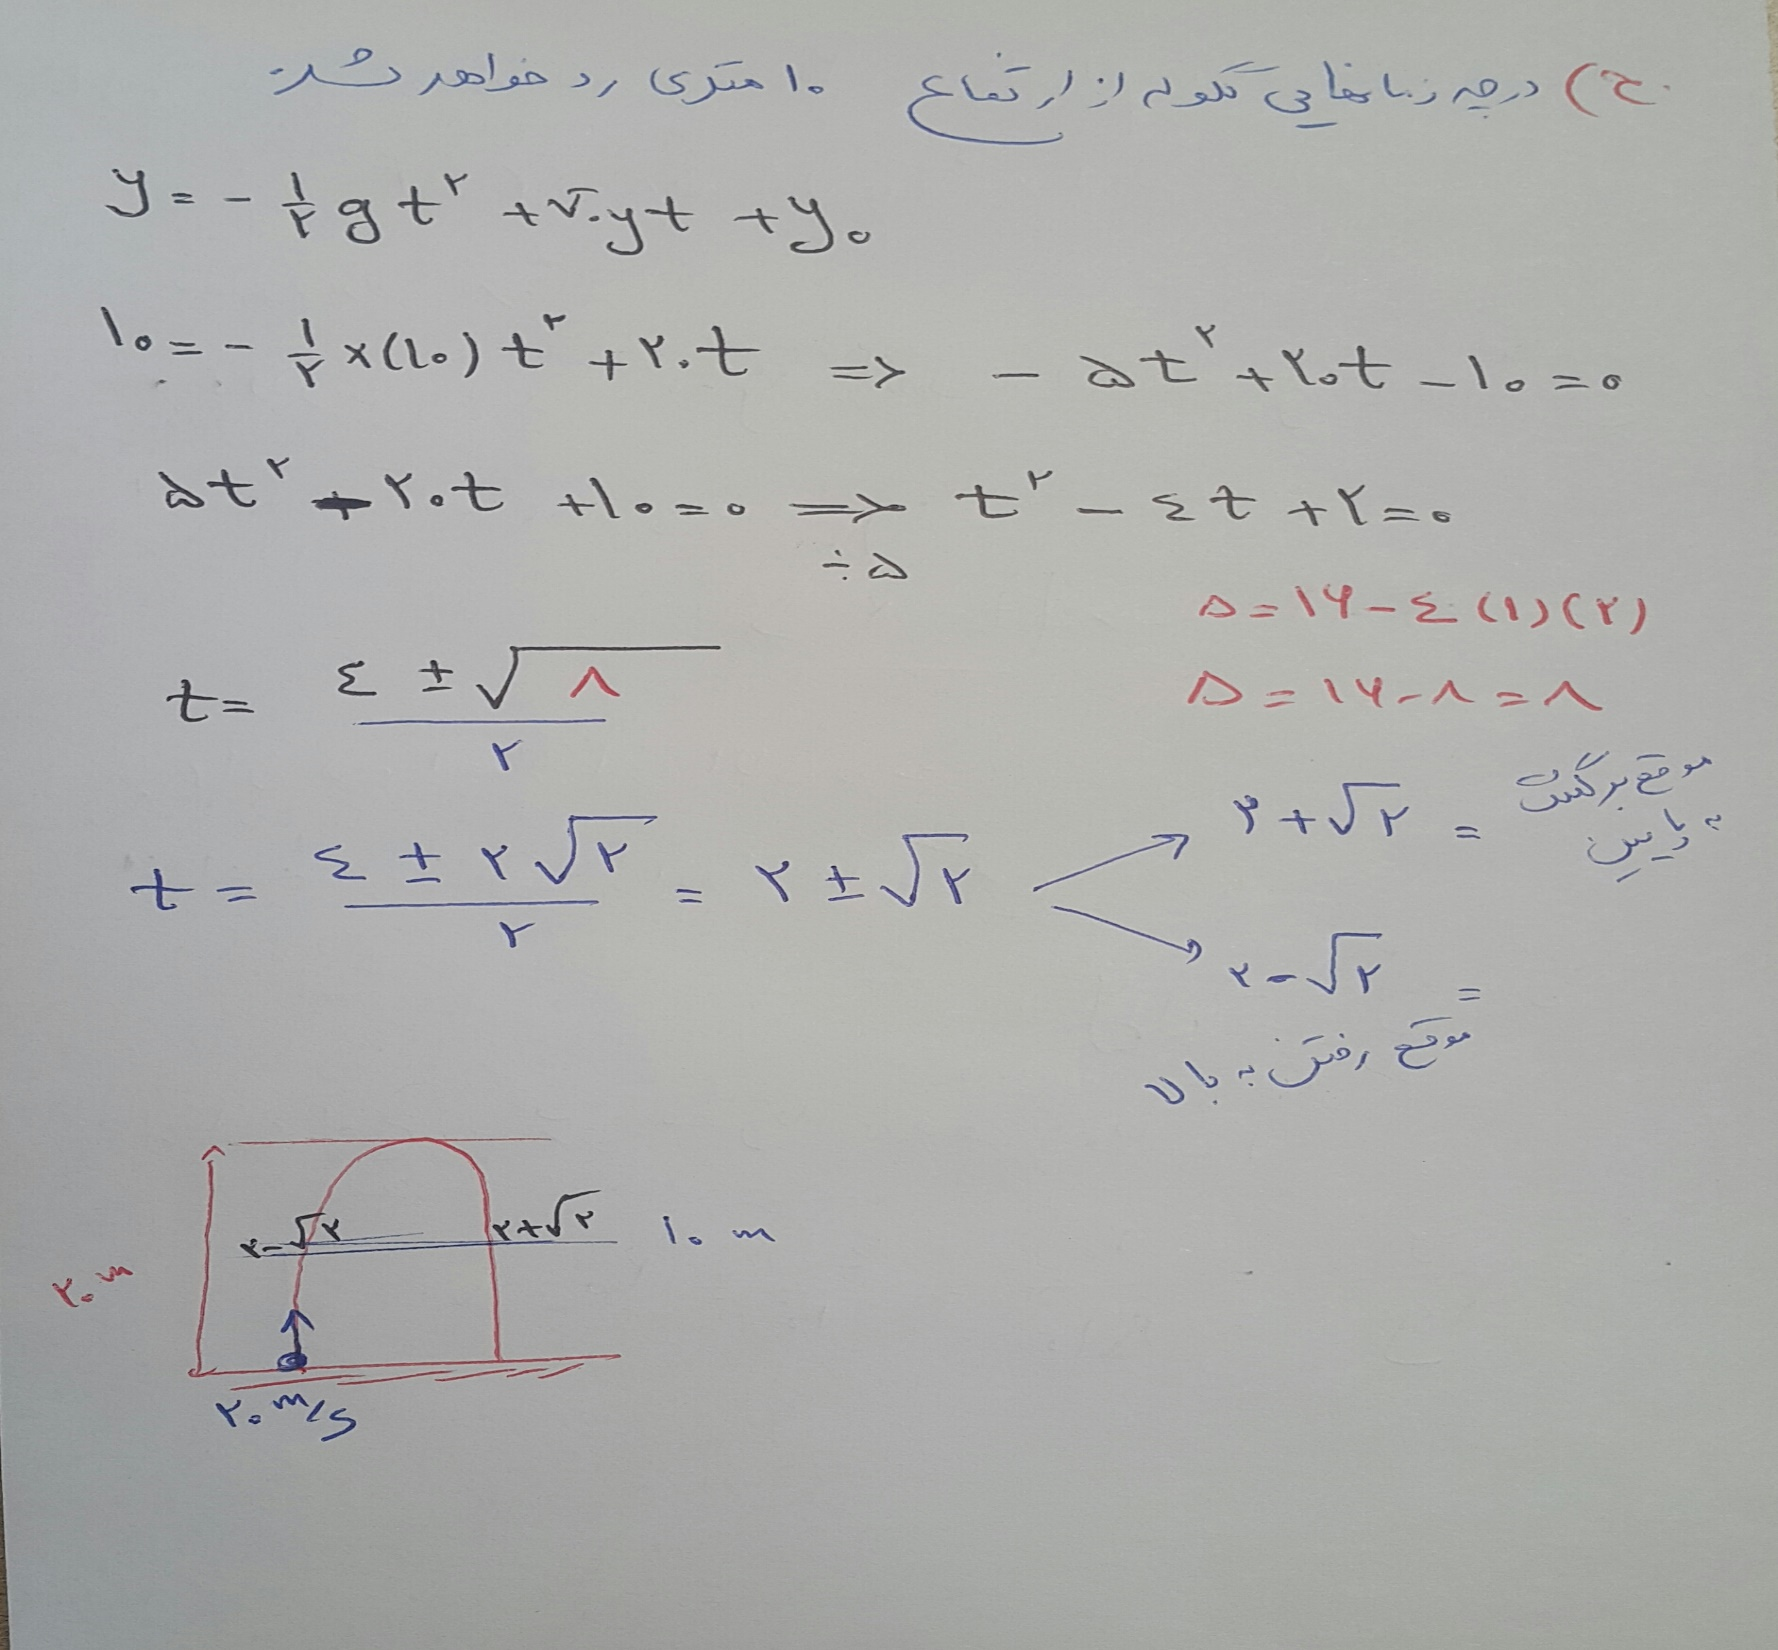 ح) در چه زمانهایی گلوله از ارتفاع ۱۰ متری رد خواهد شد.
y = - ۱/۲ g t^۲ + v۰y t + y۰
۱۰ = - ۱/۲ × (۱۰) t^۲ + ۲۰t => - ۵t^۲ + ۲۰t - ۱۰ = ۰
۵t^۲ - ۲۰t + ۱۰ = ۰ => t^۲ - ۴t + ۲ = ۰
÷۵
Δ = ۱۶ - ۴ (۱)(۲)
Δ = ۱۶ - ۸ = ۸
t = (۴ ± √۸) / ۲
t = (۴ ± ۲√۲) / ۲ = ۲ ± √۲
۲ + √۲ = موقع برگشت به پایین
۲ - √۲ =
موقع رفتن به بالا
۲-√۲ ۲+√۲ ۱۰ m
۲۰ m
۲۰ m/s